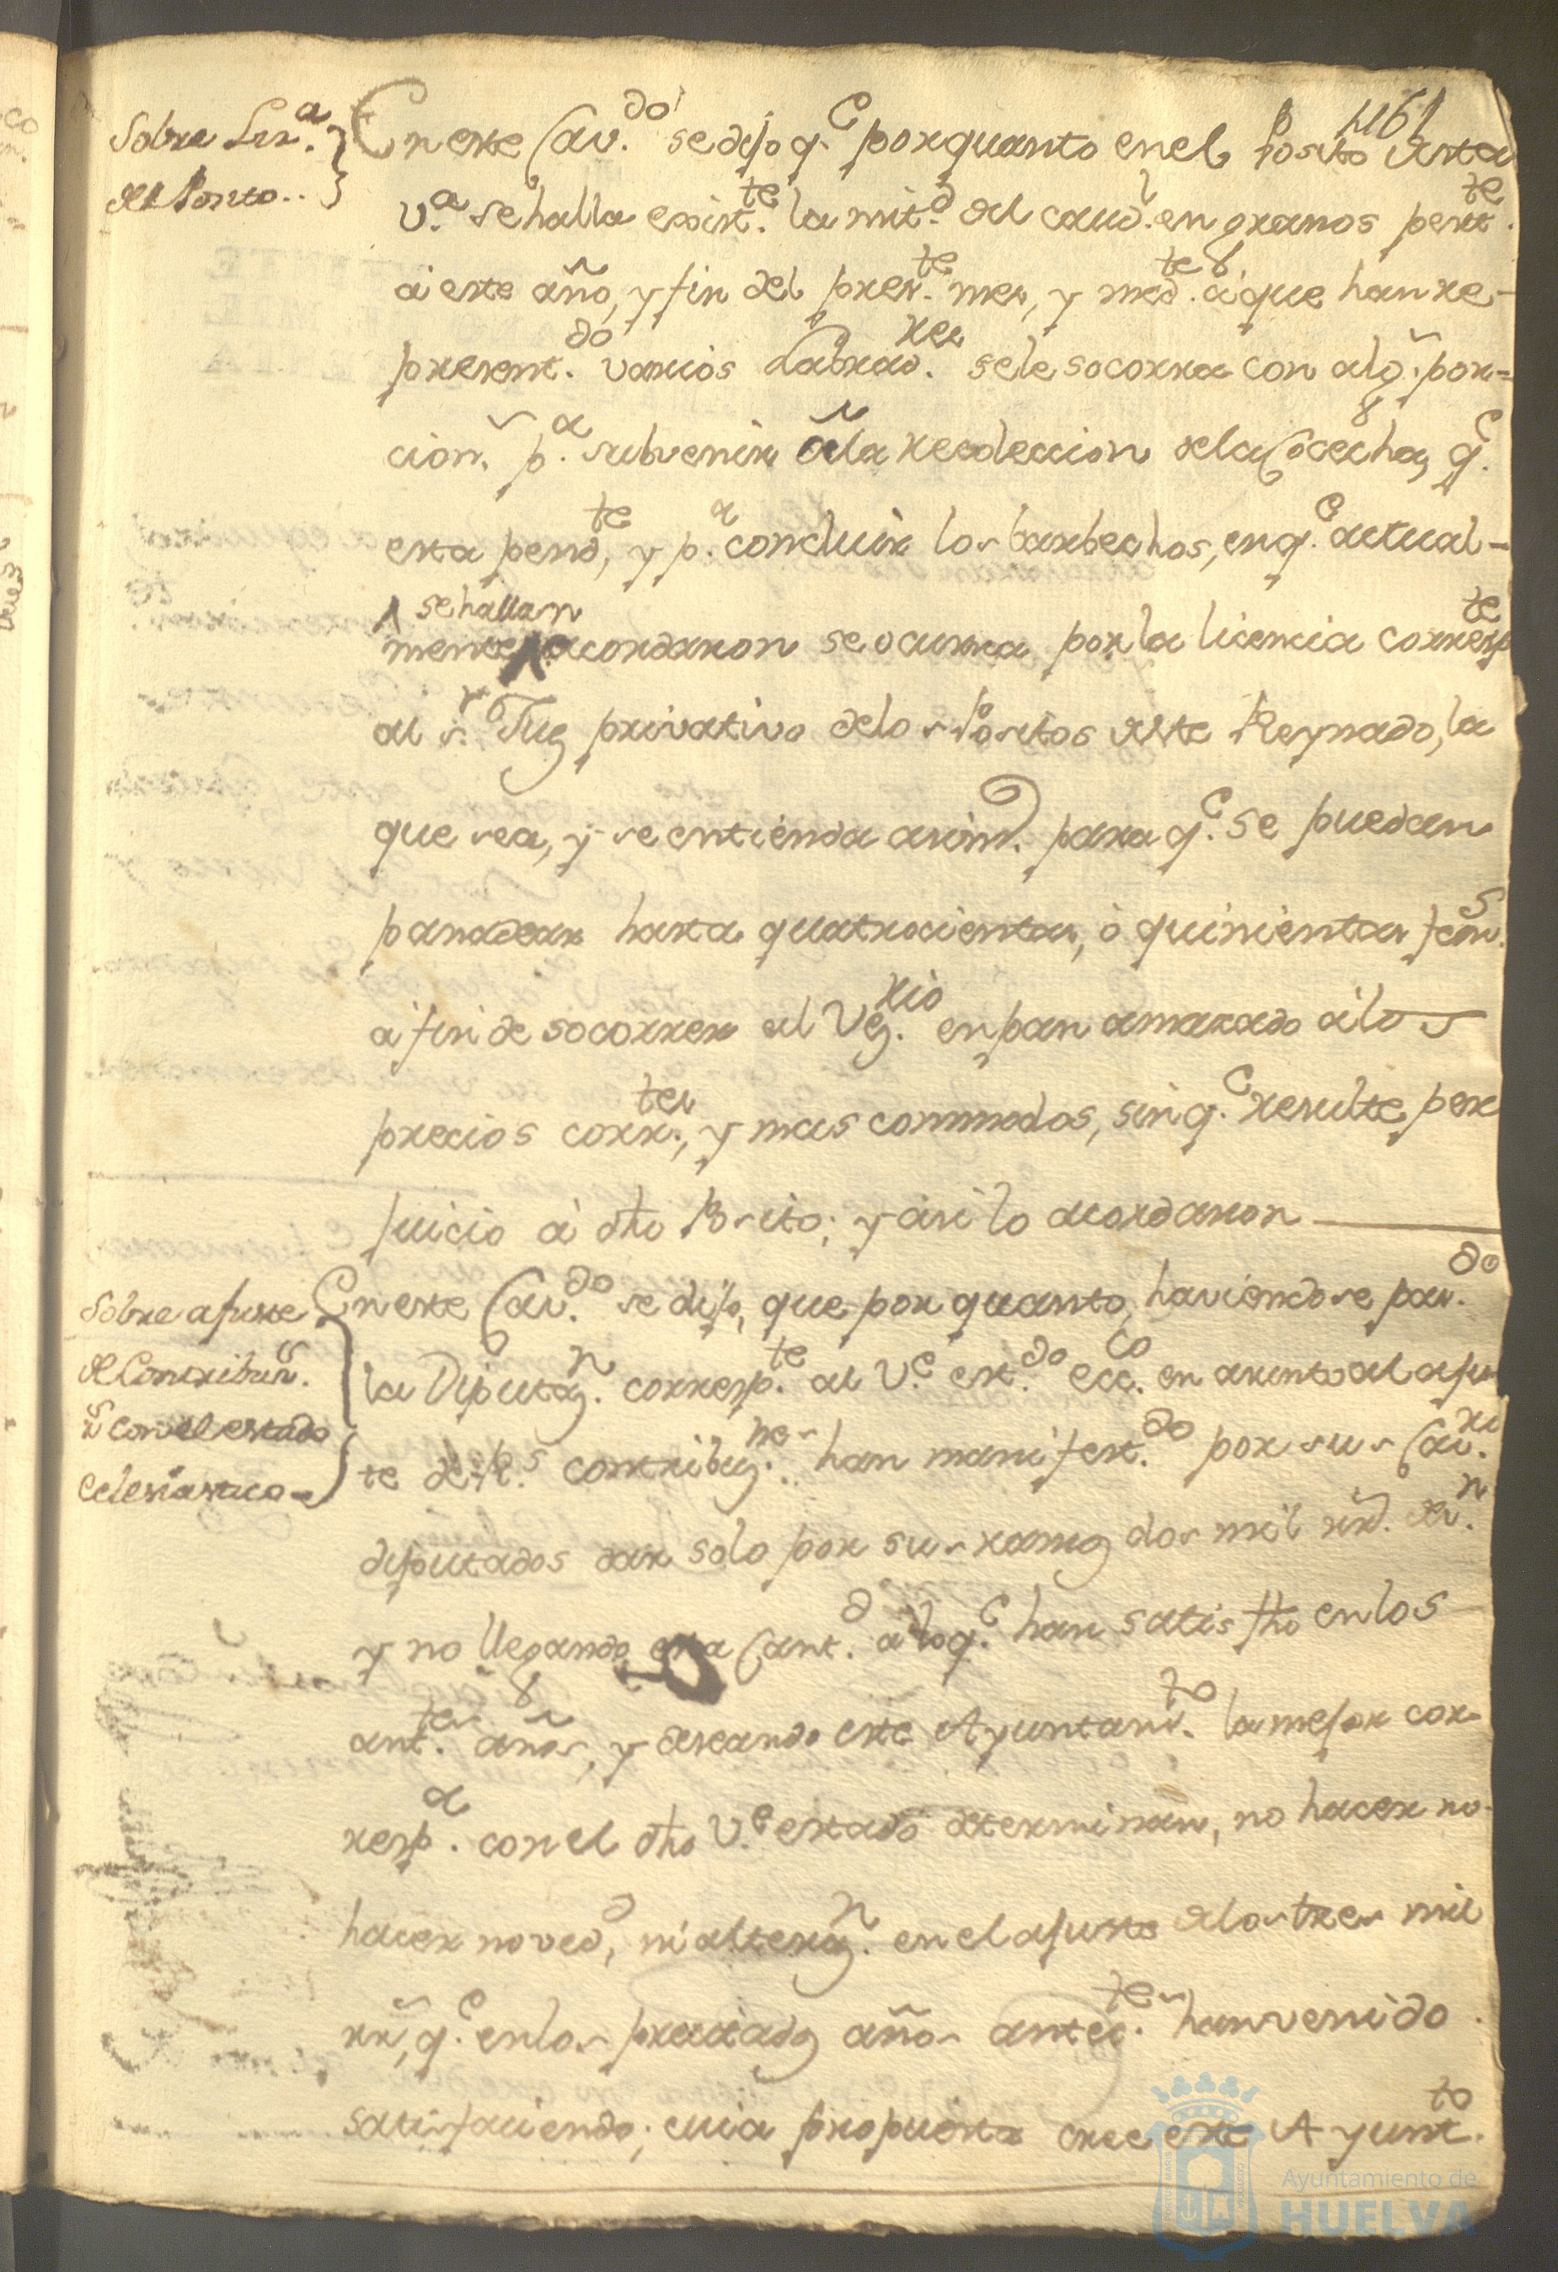 1161
Sobre Liz.ª
del Posito..
En este Cav.do se dijo q.e por quanto en el Posito desta
V.ª se halla exist.te la mit.d del caud.l en granos pert.te
á este año, y fin del pres.te mes, y med.te á que han re-
present.do varios Labrad.res se le socorra con alg.ˉ por-
cion, p.ª subvenir â la recoleccion de la Cocecha, q.e
esta pend.te, y p.ª concluir los barbechos, en q.e actual-
se hallan
mente, acordaron se ocurra por la licencia corresp.te
al s.r Juez privativo delos Positos deste Reynado, la
que sea, y se entienda asim.º para q.e se puedan
panadear hasta quatrocientas, ó quinientas fan.s
á fin de socorrer al Vez.rio en pan amasado álos
precios corr.tes, y mas commodos, sin q.e resulte per
juicio á dho Posito; y ási lo acordaron
Sobre ajuste
de Contribuz.s
con el estado
eclesiastico
En este Cav.do se dijo, que por quanto, haviendose pas.do
la Diputaz.n corresp.te al V.e est.do ecc.co en asunto al ajus
te de R.s contribuz.nes han manifest.do por sus Cav.ros
diputados dar solo por sus ramos dos mil rr.s de v.n
y no llegando esta Cant.d á lo q.e han satisfho en los
ant.tes años, y deseando este Ayuntam.to la mejor cor-
resp.ª con el dho V.e estado determinan, no hacer no-
hacer noved.d, ni alteraz.n en el ajuste de los tres mil
rr.s, q.e en los precitados años antec.tes han venido
satisfaciendo; cuia propuesta cree este Ayunt.to
Ayuntamiento de
HUELVA